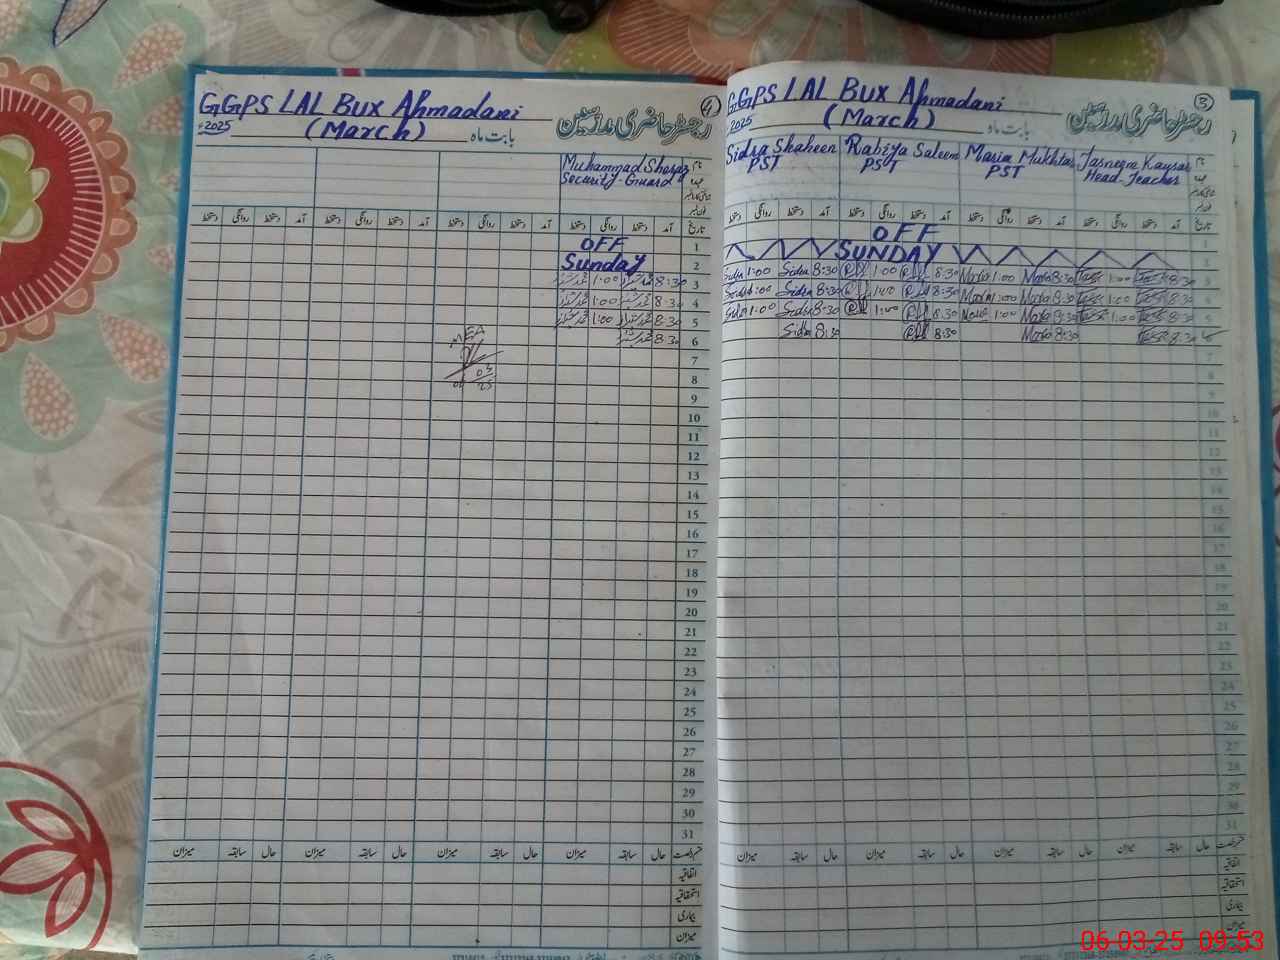 GGPS LAL BUX Ahmadani
4
2025
(March)
بابت ماہ
رجسٹر حاضری مدرسین
Muhammad Sheraz
Security Guard
نام
تاریخ
آمد
دستخط
روانگی
دستخط
آمد
دستخط
روانگی
دستخط
آمد
دستخط
روانگی
دستخط
آمد
دستخط
روانگی
دستخط
1 OFF
2 Sunday
3 8:30 1:00
4 8:30 1:00
5 8:30 1:00
6 8:30
MEA
7
8
9
10
11
12
13
14
15
16
17
18
19
20
21
22
23
24
25
26
27
28
29
30
31
حال سابقہ میزان حال سابقہ میزان حال سابقہ میزان حال سابقہ میزان
اتفاقیہ
استحقاقیہ
بیماری
میزان
GGPS LAL BUX Ahmadani
3
2025
(March)
بابت ماہ
رجسٹر حاضری مدرسین
Sidra Shaheen Rabiya Saleem Maria Mukhtar Tasneem Kausar
PST PST PST Head Teacher
نام
تاریخ
آمد
دستخط
روانگی
دستخط
آمد
دستخط
روانگی
دستخط
آمد
دستخط
روانگی
دستخط
آمد
دستخط
روانگی
دستخط
OFF 1
SUNDAY 2
Sidra 1:00 Sidra 8:30 1:00 8:30 Maria 1:00 Maria 8:30 1:00 8:30 3
Sidra 1:00 Sidra 8:30 1:00 8:30 Maria 1:00 Maria 8:30 1:00 8:30 4
Sidra 1:00 Sidra 8:30 1:00 8:30 Maria 1:00 Maria 8:30 1:00 8:30 5
Sidra 8:30 8:30 Maria 8:30 8:30 6
7
8
9
10
11
12
13
14
15
16
17
18
19
20
21
22
23
24
25
26
27
28
29
30
31
حال سابقہ میزان حال سابقہ میزان حال سابقہ میزان حال سابقہ میزان
اتفاقیہ
استحقاقیہ
بیماری
میزان
06-03-25 09:53